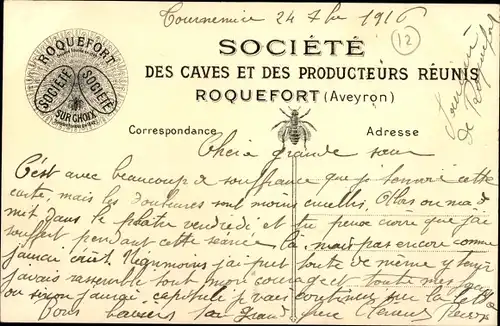 Tournemire 24 7bre 1916
12
ROQUEFORT
SOCIÉTÉ
SOCIÉTÉ
SUR CHOIX
SOCIÉTÉ
DES CAVES ET DES PRODUCTEURS RÉUNIS
ROQUEFORT (Aveyron)
Souvenir
de Roquefort
Correspondance
Adresse
Cherie grande sœur
C'est avec beaucoup de souffrance que je t'envoie cette
carte, mais les douleurs sont moins cruelles. Hélas on m'a
mit dans le plâtre vendredi et tu peux croire que j'ai
souffert pendant cette séance là, mais pas encore comme
jamais crié. Neanmoins j'ai put tout de même y tenir
j'avais rassemblé tout mon courage et toute mes
ou sinon j'aurai capitulé je vais continuer sur la lettre
Vous baisers
grand